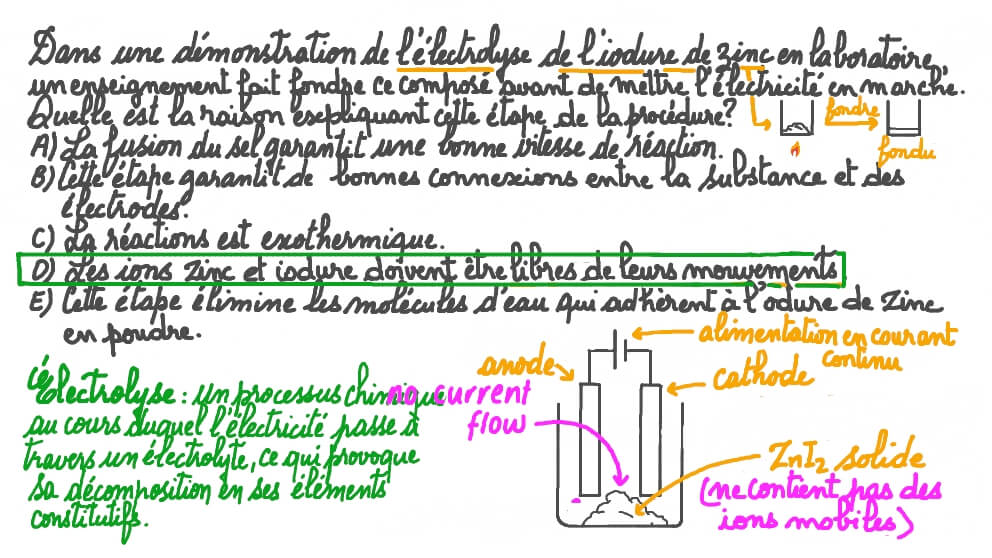 Dans une démonstration de l'électrolyse de l'iodure de zinc en laboratoire,
un enseignement fait fondre ce composé avant de mettre l'électricité en marche.
Quelle est la raison expliquant cette étape de la procédure?
fondre
fondu
A) La fusion du sel garantit une bonne vitesse de réaction.
B) Cette étape garantit de bonnes connexions entre la substance et des
électrodes.
C) La réactions est exothermique.
D) Les ions zinc et iodure doivent être libres de leurs mouvements
E) Cette étape élimine les molécules d'eau qui adhèrent à l'odure de zinc
en poudre.
alimentation en courant
continu
anode
cathode
Électrolyse : Un processus chimique
au cours duquel l'électricité passe à
travers un électrolyte, ce qui provoque
sa décomposition en ses éléments
constitutifs.
no current
flow
ZnI2 solide
(ne contient pas des
ions mobiles)